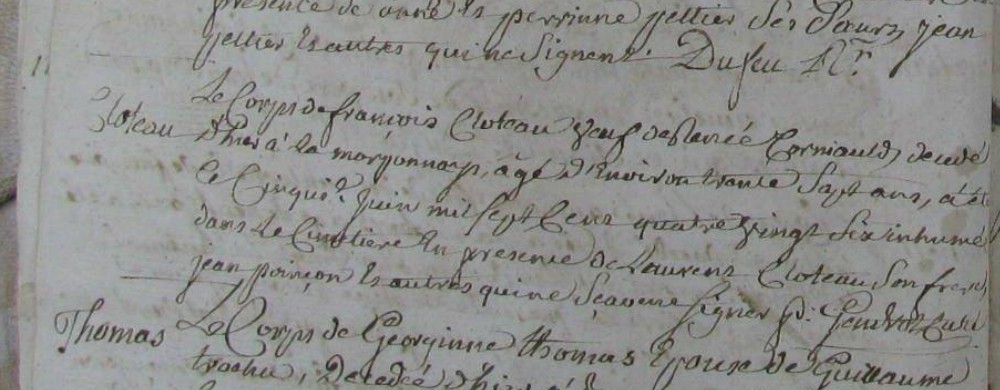 presence de anne et perrinne pellier ses soeurs jean
pellier et autres qui ne signent. Dufeu Rr.
Cloteau
Le Corps de françois Cloteau veuf de Renée Corniault, decedé
d'hier à la age d'environ trante sept ans, a été
le Cinqui.e juin mil sept Cent quatre vingt six inhumé
dans le Cimetiere En presence de Laurens Cloteau son frere,
jean poinçon et autres qui ne sçavent signer
Thomas
Le Corps de Georginne thomas Epouse de Guillaume
trochu, Decedée d'hier